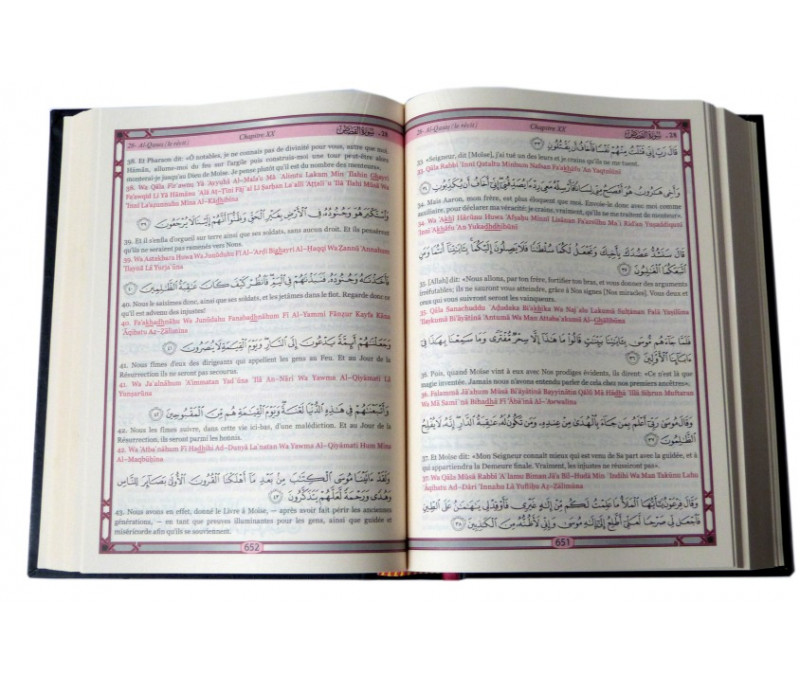 28- Al-Qasas (le récit) Chapitre XX سُورَةُ القَصَصِ
قَالَ رَبِّ إِنِّي قَتَلْتُ مِنْهُمْ نَفْسًا فَأَخَافُ أَن يَقْتُلُونِ ٣٣
33. «Seigneur, dit [Moïse], j'ai tué un des leurs et je crains qu'ils ne me tuent.
33. Qāla Rabbi 'Innī Qataltu Minhum Nafsan Fa'akhāfu An Yaqtulūni
وَأَخِي هَٰرُونُ هُوَ أَفْصَحُ مِنِّي لِسَانًا فَأَرْسِلْهُ مَعِيَ رِدْءًا يُصَدِّقُنِي إِنِّي أَخَافُ أَن يُكَذِّبُونِ ٣٤
34. Mais Aaron, mon frère, est plus éloquent que moi. Envoie-le donc avec moi comme
auxiliaire, pour déclarer ma véracité: je crains, vraiment, qu'ils ne me traitent de menteur».
34. Wa 'Akhī Hārūnu Huwa 'Afşaĥu Minnī Lisānan Fa'arsilhu Ma'ī Rid'an Yuşaddiqunī
'Innī 'Akhāfu 'An Yukadhdhibūni
قَالَ سَنَشُدُّ عَضُدَكَ بِأَخِيكَ وَنَجْعَلُ لَكُمَا سُلْطَٰنًا فَلَا يَصِلُونَ إِلَيْكُمَا بِـَٔايَٰتِنَا أَنتُمَا وَمَنِ
ٱتَّبَعَكُمَا ٱلْغَٰلِبُونَ ٣٥
35. [Allah] dit: «Nous allons, par ton frère, fortifier ton bras, et vous donner des arguments
irréfutables; ils ne sauront vous atteindre, grâce à Nos signes [Nos miracles]. Vous deux et
ceux qui vous suivront seront les vainqueurs.
35. Qāla Sanashuddu `Ađudaka Bi'akhīka Wa Naj`alu Lakumā Sulţānan Falā Yaşilūna
'Ilaykumā Bi'āyātinā 'Antumā Wa Man Attaba`akumā Al-Ghālibūna
فَلَمَّا جَآءَهُم مُّوسَىٰ بِـَٔايَٰتِنَا بَيِّنَٰتٍ قَالُوا۟ مَا هَٰذَآ إِلَّا سِحْرٌ مُّفْتَرًى وَمَا سَمِعْنَا بِهَٰذَا فِىٓ
ءَابَآئِنَا ٱلْأَوَّلِينَ ٣٦
36. Puis, quand Moïse vint à eux avec Nos prodiges évidents, ils dirent: «Ce n'est là que
magie inventée. Jamais nous n'avons entendu parler de cela chez nos premiers ancêtres».
36. Falammā Jā'ahum Mūsá Bi'āyātinā Bayyinātin Qālū Mā Hādhā 'Illā Siĥrun Muftaran
Wa Mā Sami`nā Bihadhā Fī 'Ābā'inā Al-'Awwalīna
وَقَالَ مُوسَىٰ رَبِّىٓ أَعْلَمُ بِمَن جَآءَ بِٱلْهُدَىٰ مِنْ عِندِهِۦ وَمَن تَكُونُ لَهُۥ عَٰقِبَةُ ٱلدَّارِ إِنَّهُۥ لَا يُفْلِحُ
ٱلظَّٰلِمُونَ ٣٧
37. Et Moïse dit: «Mon Seigneur connaît mieux qui est venu de Sa part avec la guidée, et à
qui appartiendra la Demeure finale. Vraiment, les injustes ne réussiront pas».
37. Wa Qāla Mūsá Rabbī 'A`lamu Biman Jā'a Bil-Hudá Min `Indihi Wa Man Takūnu Lahu
`Āqibatu Ad-Dāri 'Innahu Lā Yufliĥu Až-Žālimūna
وَقَالَ فِرْعَوْنُ يَٰٓأَيُّهَا ٱلْمَلَأُ مَا عَلِمْتُ لَكُم مِّنْ إِلَٰهٍ غَيْرِى فَأَوْقِدْ لِى يَٰهَٰمَٰنُ عَلَى ٱلطِّينِ
فَٱجْعَل لِّى صَرْحًا لَّعَلِّىٓ أَطَّلِعُ إِلَىٰٓ إِلَٰهِ مُوسَىٰ وَإِنِّى لَأَظُنُّهُۥ مِنَ ٱلْكَٰذِبِينَ ٣٨
651
28- Al-Qasas (le récit) Chapitre XX سُورَةُ القَصَصِ
38. Et Pharaon dit: «Ô notables, je ne connais pas de divinité pour vous, autre que moi.
Hāmān, allume-moi du feu sur l'argile puis construis-moi une tour peut-être alors
monterai-je jusqu'au Dieu de Moïse. Je pense plutôt qu'il est du nombre des menteurs».
38. Wa Qāla Fir`awnu Yā 'Ayyuhā Al-Mala'u Mā `Alimtu Lakum Min 'Ilahin Ghayrī
Fa'awqid Lī Yā Hāmānu `Alá Aţ-Ţīni Fāj`al Lī Şarĥan La`allī 'Aţţali`u 'Ilá 'Ilahi Mūsá Wa
'Innī La'ažunnuhu Mina Al-Kādhibīna
وَٱسْتَكْبَرَ هُوَ وَجُنُودُهُۥ فِى ٱلْأَرْضِ بِغَيْرِ ٱلْحَقِّ وَظَنُّوٓا۟ أَنَّهُمْ إِلَيْنَا لَا يُرْجَعُونَ ٣٩
39. Et il s'enfla d'orgueil sur terre ainsi que ses soldats, sans aucun droit. Et ils pensèrent
qu'ils ne seraient pas ramenés vers Nous.
39. Wa Astakbara Huwa Wa Junūduhu Fī Al-'Arđi Bighayri Al-Ĥaqqi Wa Žannū 'Annahum
'Ilaynā Lā Yurja`ūna
فَأَخَذْنَٰهُ وَجُنُودَهُۥ فَنَبَذْنَٰهُمْ فِى ٱلْيَمِّ فَٱنظُرْ كَيْفَ كَانَ عَٰقِبَةُ ٱلظَّٰلِمِينَ ٤٠
40. Nous le saisîmes donc, ainsi que ses soldats, et les jetâmes dans le flot. Regarde donc ce
qu'il est advenu des injustes!
40. Fa'akhadhnāhu Wa Junūdahu Fanabadhnāhum Fī Al-Yammi Fānžur Kayfa Kāna
`Āqibatu Až-Žālimīna
وَجَعَلْنَٰهُمْ أَئِمَّةً يَدْعُونَ إِلَى ٱلنَّارِ وَيَوْمَ ٱلْقِيَٰمَةِ لَا يُنصَرُونَ ٤١
41. Nous fîmes d'eux des dirigeants qui appellent les gens au Feu. Et au Jour de la
Résurrection ils ne seront pas secourus.
41. Wa Ja`alnāhum 'A'immatan Yad`ūna 'Ilá An-Nāri Wa Yawma Al-Qiyāmati Lā
Yunşarūna
وَأَتْبَعْنَٰهُمْ فِى هَٰذِهِ ٱلدُّنْيَا لَعْنَةً وَيَوْمَ ٱلْقِيَٰمَةِ هُم مِّنَ ٱلْمَقْبُوحِينَ ٤٢
42. Nous les fîmes suivre, dans cette vie ici-bas, d'une malédiction. Et au Jour de la
Résurrection, ils seront parmi les honnis.
42. Wa 'Atba`nāhum Fī Hadhihi Ad-Dunyā La`natan Wa Yawma Al-Qiyāmati Hum Mina
Al-Maqbūĥīna
وَلَقَدْ ءَاتَيْنَا مُوسَى ٱلْكِتَٰبَ مِنۢ بَعْدِ مَآ أَهْلَكْنَا ٱلْقُرُونَ ٱلْأُولَىٰ بَصَآئِرَ لِلنَّاسِ
وَهُدًى وَرَحْمَةً لَّعَلَّهُمْ يَتَذَكَّرُونَ ٤٣
43. Nous avons en effet, donné le Livre à Moïse, – après avoir fait périr les anciennes
générations, – en tant que preuves illuminantes pour les gens, ainsi que guidée et
miséricorde afin qu'ils se souviennent.
652